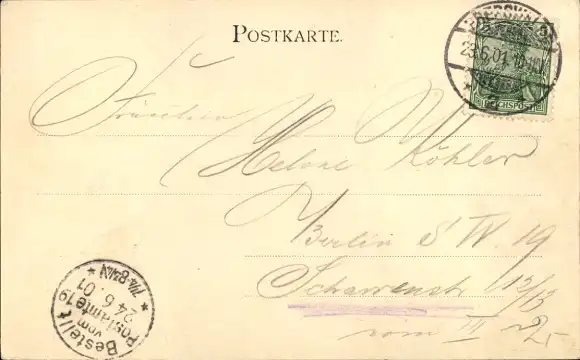 POSTKARTE.
23.6.01
REICHSPOST
Fräulein
Helene Köhler
Berlin S W. 19
Scharrenstr 12/13
vom III
Bestellt
vom
Postamte 19
24.6.01
* 7¼-8¼N *